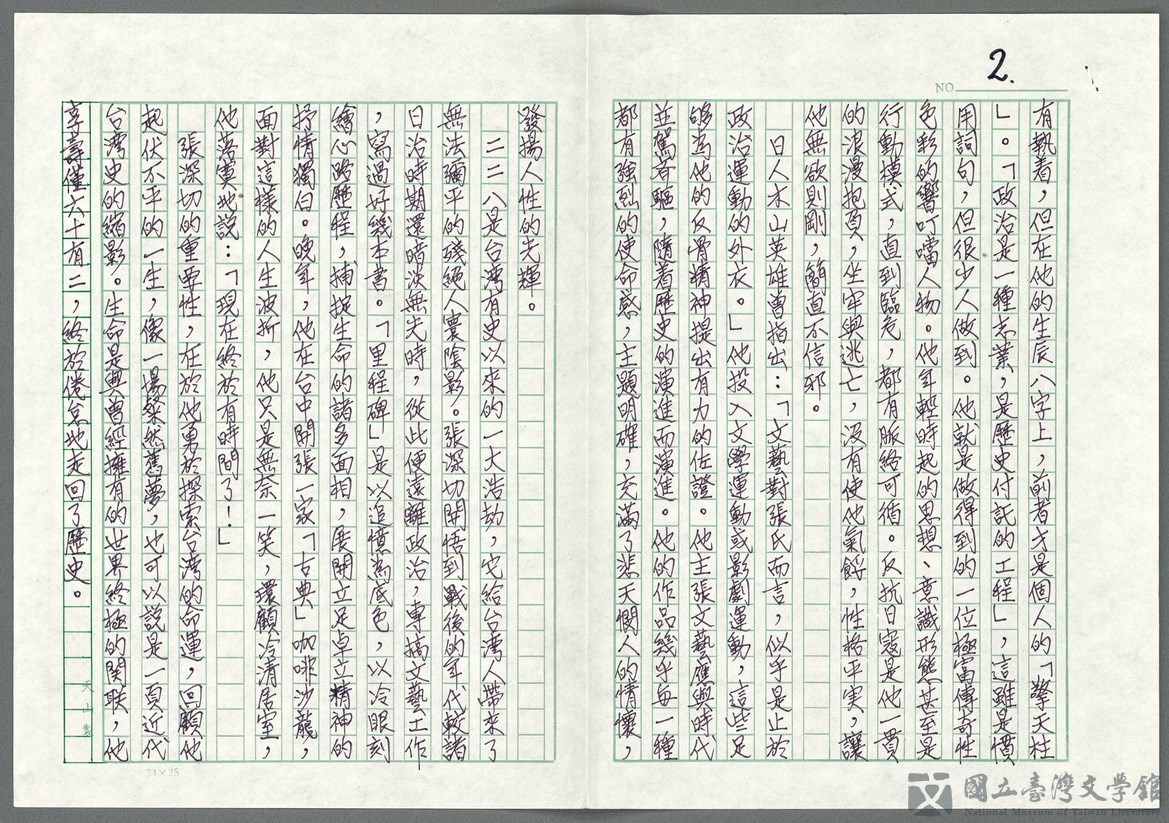 2.
NO
有執着，但在他的生辰八字上，前者才是個人的「擎天柱
」。「政治是一種志業，是歷史付託的工程」，這雖是慣
用詞句，但很少人做到。他就是做得到的一位極富傳奇性
色彩的響叮噹人物。他年輕時起的思想、意識形態甚至是
行動模式，直到臨危，都有脈絡可循。反抗日寇是他一貫
的浪漫抱負，坐牢與逃亡，沒有使他氣餒，性格平实，讓
他無欲則剛，簡直不信邪。
日人木山英雄曾指出：「文藝對張氏而言，似乎是止於
政治運動的外衣。」他投入文學運動或影劇運動，這些足
夠為他的反骨精神提出有力的佐證。他主張文藝應與時代
並駕齊驅，隨着歷史的演進而演進。他的作品幾乎每一種
都有強烈的使命感，主題明確，充滿了悲天憫人的情懷，
發揚人性的光輝。
二二八是台灣有史以來的一大浩劫，它給台灣人帶來了
無法彌平的殘絕人寰陰影。張深切開悟到戰後的年代較諸
日治時期還暗淡無光時，從此便遠離政治，專搞文藝工作
，寫過好幾本書。「里程碑」是以追憶為底色，以冷眼刻
繪心路歷程，捕捉生命的諸多面相，展開立足卓立精神的
抒情獨白。晚年，他在台中開張一家「古典」咖啡沙龍，
面對這樣的人生波折，他只是無奈一笑，環顧冷清居室，
他落寞地說：「現在終於有時間了！」
張深切的重要性，在於他勇於探索台灣的命運，回顧他
起伏不平的一生，像一場粲然舊夢，也可以說是一頁近代
台灣史的縮影。生命是與曾經擁有的世界終極的関联，他
享壽僅六十有二，終於倦怠地走回了歷史。
24×25
國立臺灣文學館
National Museum of Taiwan Literature